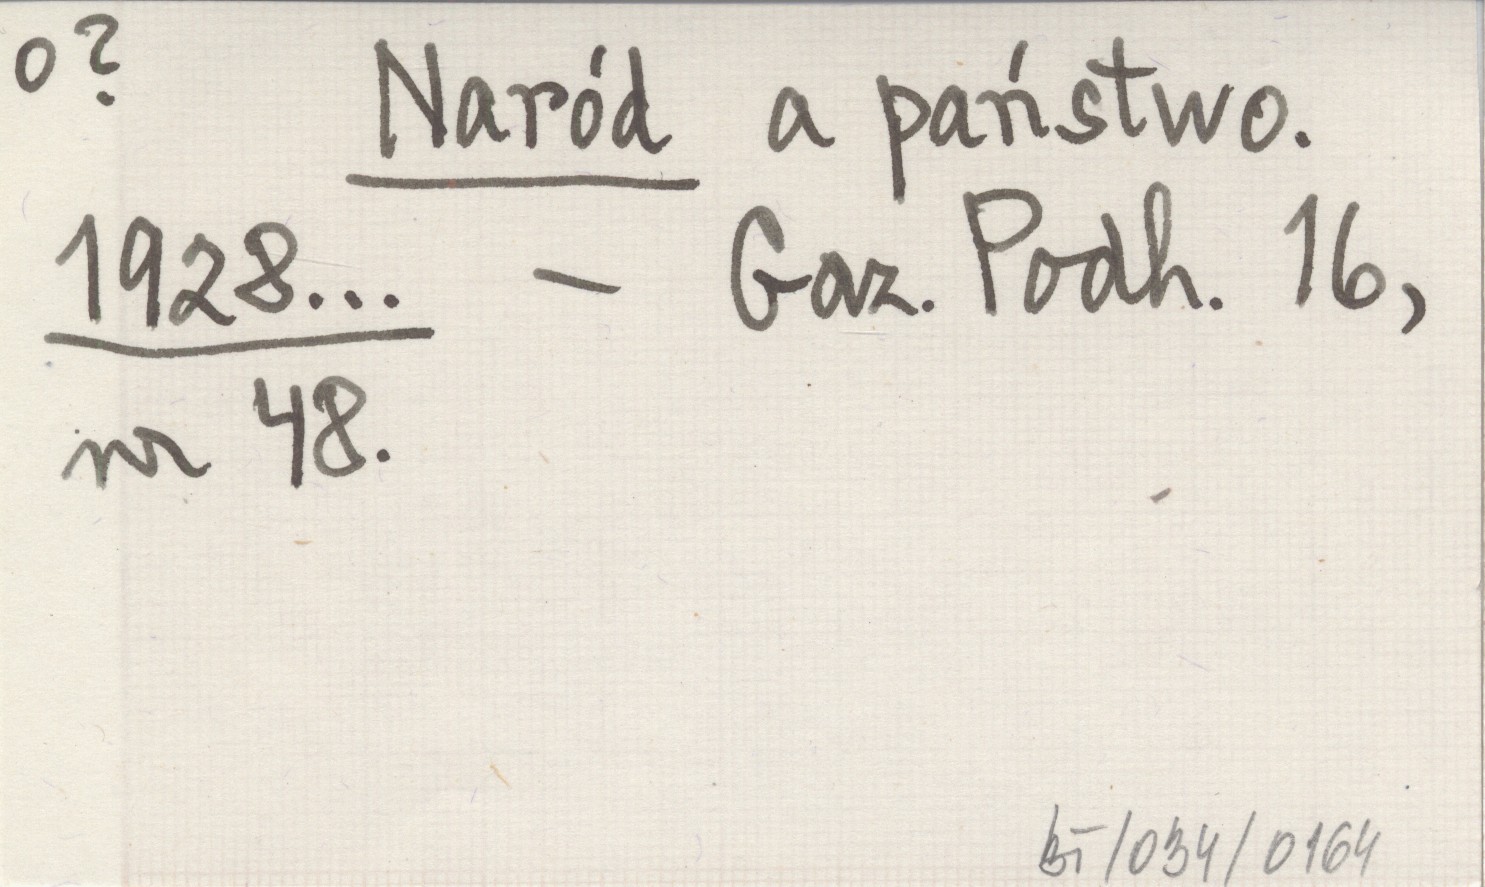 o?
Naród a państwo.
1928... – Gaz. Podh. 16,
nr 48.
/034/0164